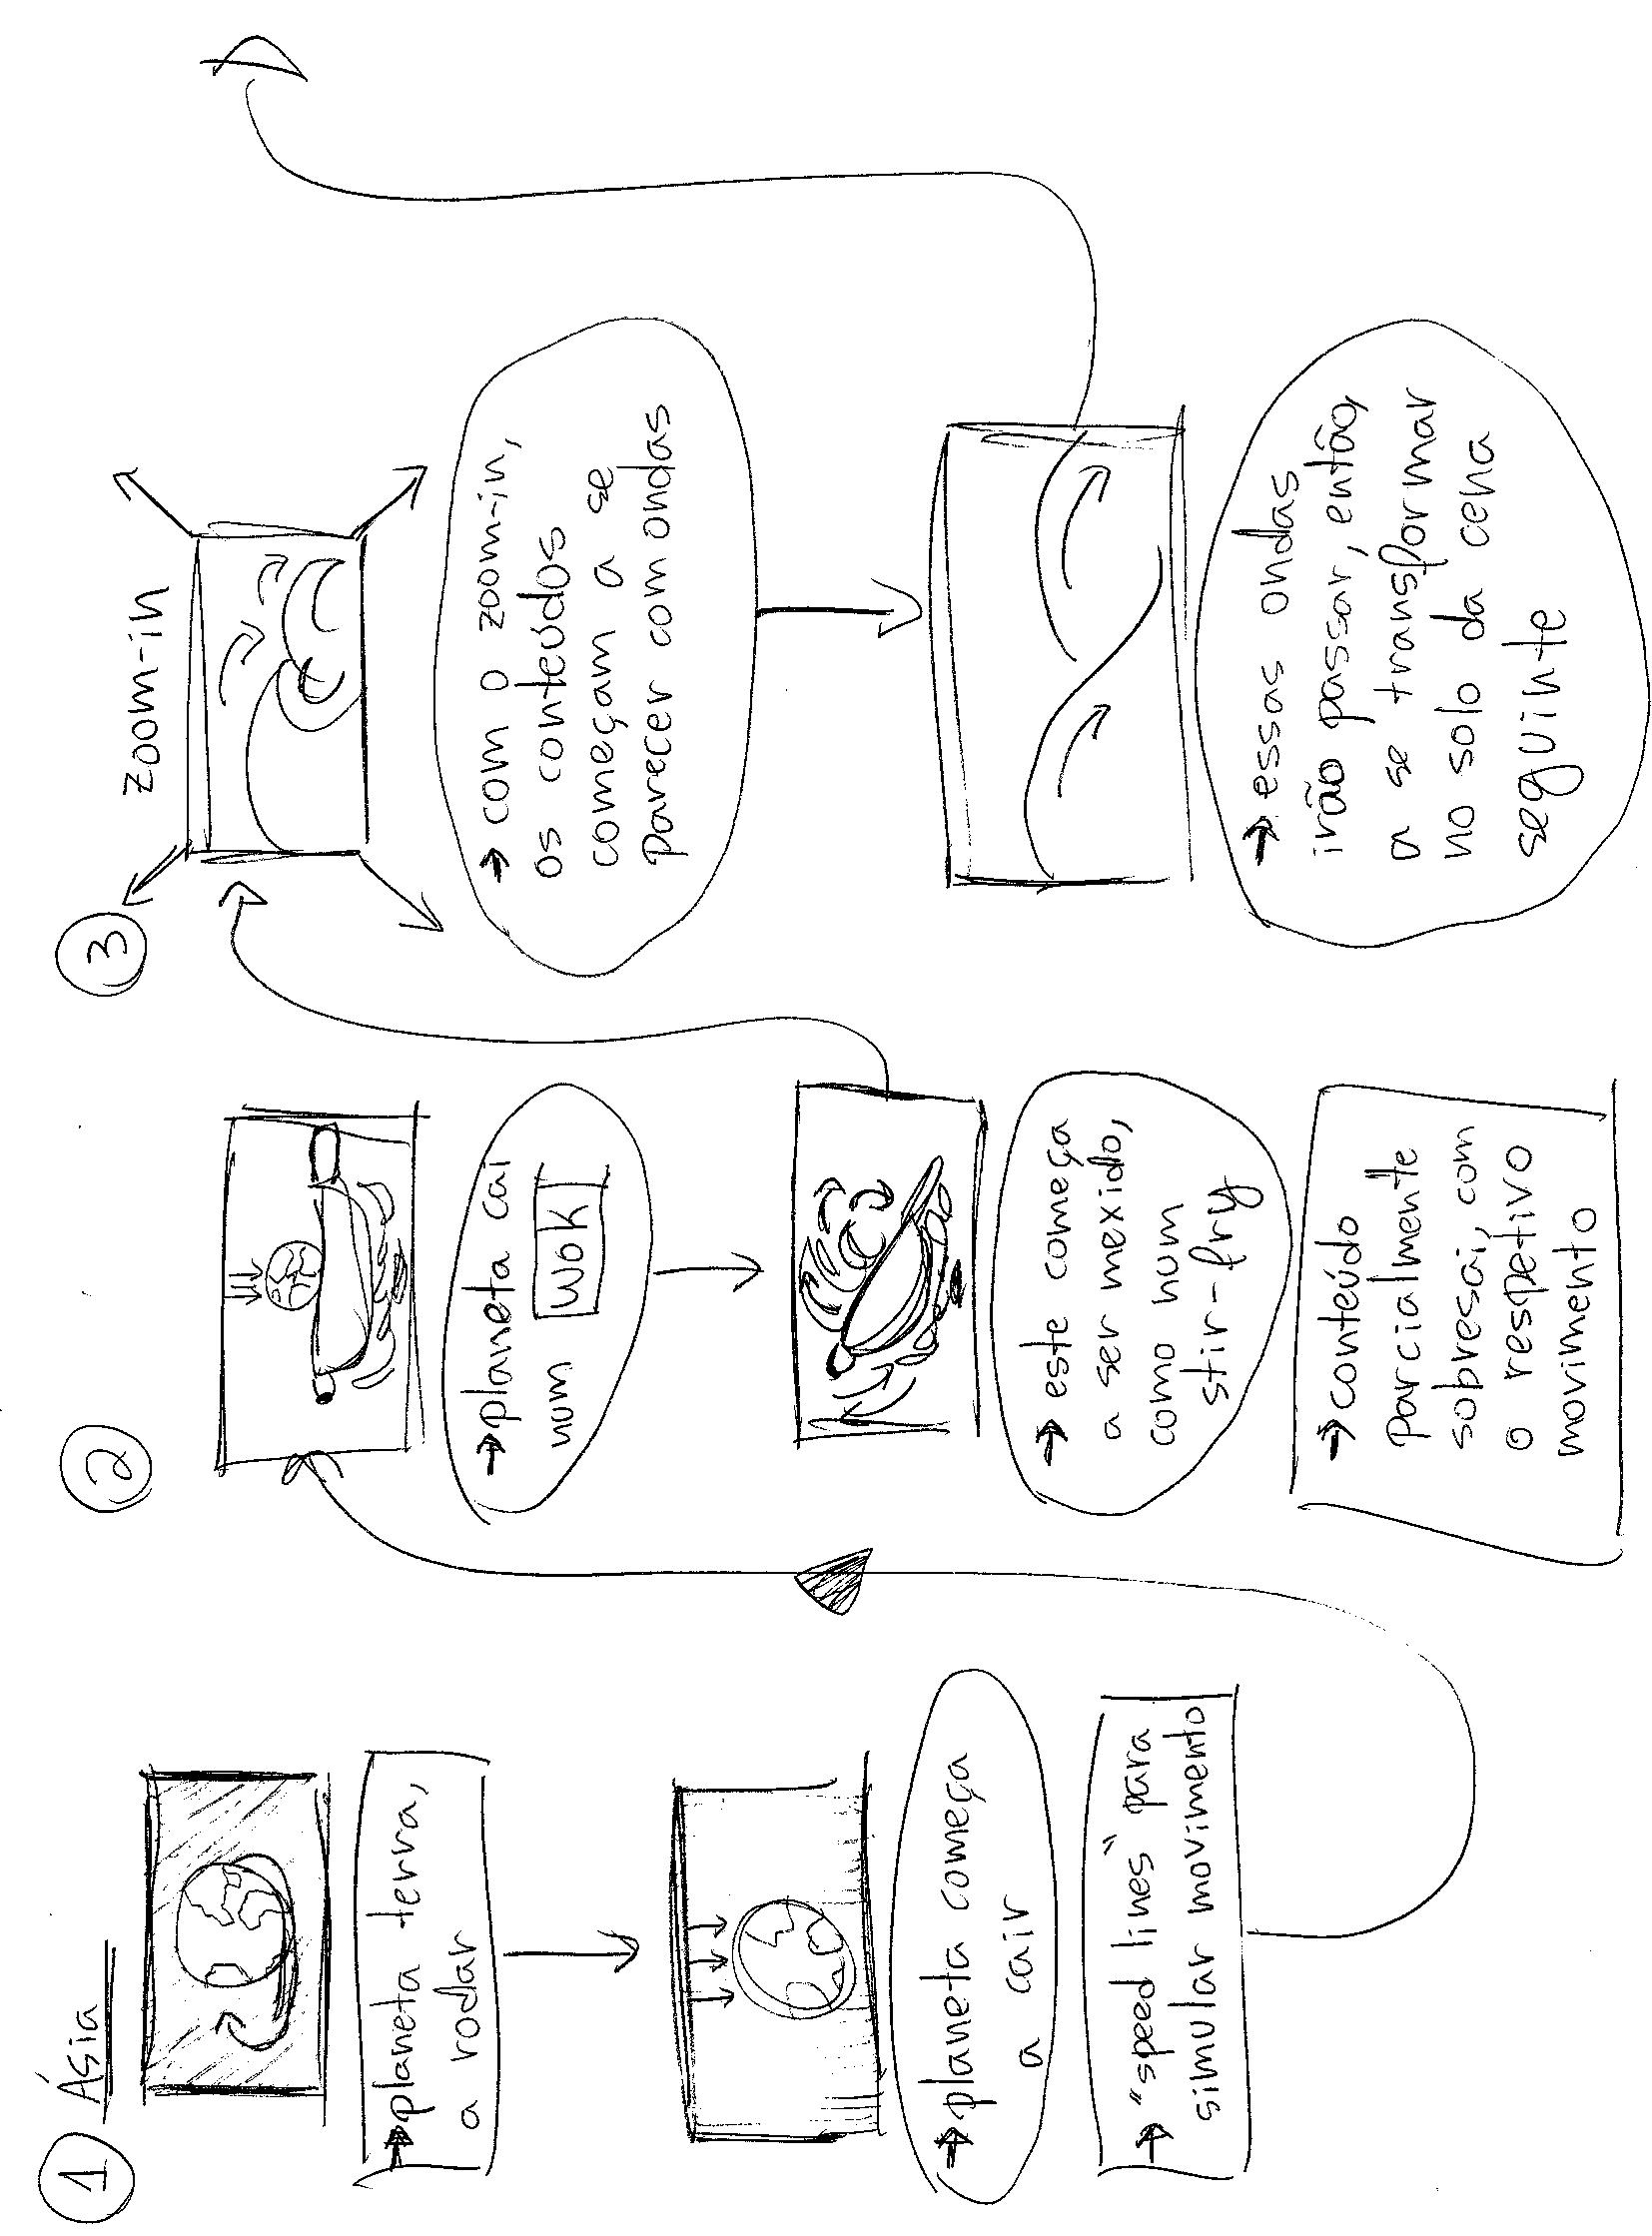 1 Ásia
→ planeta terra,
a rodar
→ planeta começa
a cair
→ "speed lines" para
simular movimento
2
→ planeta cai
num wok
→ este começa
a ser mexido,
como num
stir-fry
→ conteúdo
parcialmente
sobresai, com
o respetivo
movimento
3
zoom-in
→ com o zoom-in,
os conteúdos
começam a se
parecer com ondas
→ essas ondas
irão passar, então,
a se transformar
no solo da cena
seguinte